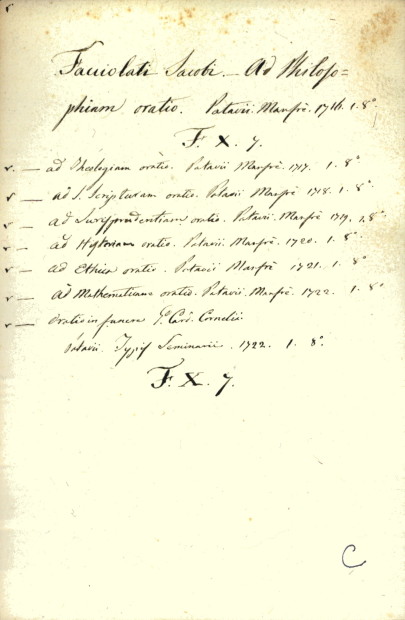 Facciolati Jacobi. — Ad Philoso=
phiam oratio. Patavii. Manfrè. 1716. 1. 8°
F. X. 7.
v. — ad Theologiam oratio. Patavii Manfrè. 1717. 1. 8°
v — ad S. Scripturam oratio. Patavii Manfrè 1718. 1. 8°.
v — ad Jurisprudentiam oratio. Patavii. Manfrè 1719. 1. 8°
v — ad Historiam oratio. Patavii. Manfrè. 1720. 1. 8°.
v — ad Ethicā oratio. Patavii Manfrè 1721. 1. 8°
v — ad Mathematicam oratio. Patavii. Manfrè. 1722. 1. 8°
v — Oratio in funere G. Card. Cornelii
Patavii. Typis Seminarii. 1722. 1. 8°.
F. X. 7.
C